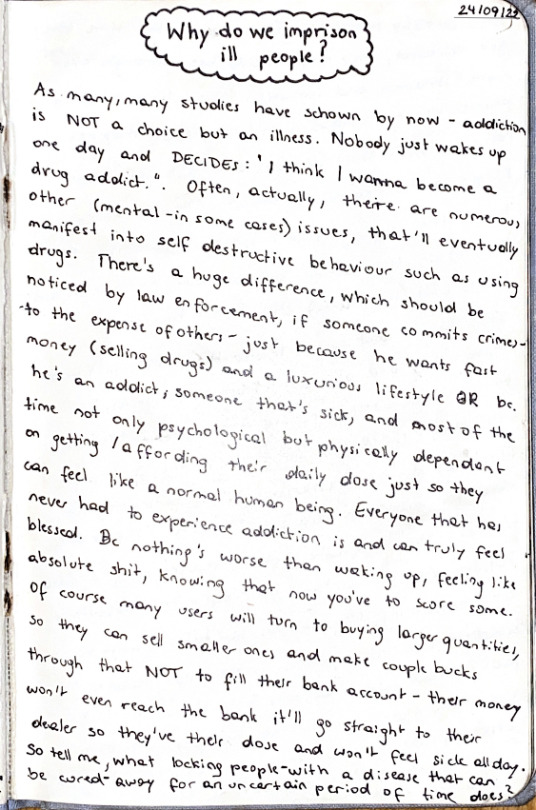 24/09/23
Why do we imprison
ill people?
As many, many studies have schown by now - addiction
is NOT a choice but an illness. Nobody just wakes up
one day and DECIDES: "I think I wanna become a
drug addict.". Often, actually, there are numerous
other (mental - in some cases) issues, that'll eventually
manifest into self destructive behaviour such as using
drugs. There's a huge difference, which should be
noticed by law enforcement, if someone commits crimes-
-to the expense of others - just because he wants fast
money (selling drugs) and a luxurious lifestyle OR bc.
he's an addict; someone that's sick, and most of the
time not only psychological but physically dependant
on getting / affording their daily dose just so they
can feel like a normal human being. Everyone that has
never had to experience addiction is and can truly feel
blessed. Bc nothing's worse than waking up, feeling like
absolute shit, knowing that now you've to score some.
Of course many users will turn to buying larger quantities,
so they can sell smaller ones and make couple bucks
through that NOT to fill their bank account - their money
won't even reach the bank it'll go straight to their
dealer so they've their dose and won't feel sick all day.
So tell me, what locking people - with a disease that can
be cured - away for an uncertain period of time does?